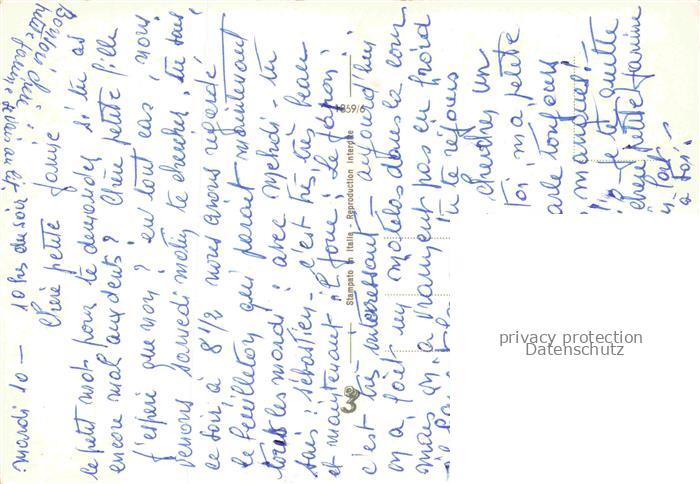 mardi 10 — 10 hs du soir
Chère petite Janine : Bonjour chérie
le petit mot pour te demander si tu as
encore mal aux dents? Chère petite fille
j'espère que non? en tout cas, nous
venons samedi matin te chercher, tu sais,
ce soir, à 8 1/2 nous avons regardé
le feuilleton qui parait maintenant
tous les mardi : avec Mehdi - tu
sais : sébastien - c'est très, très beau
et maintenant il joue : le Japon!
c'est très intéressant aujourd'hui
on a fait un matelas dans la cour
mais on a vraiment pas eu froid
tu te réjouis
cherches un
toi ma petite
parle toujours
manques!
je te quitte
chère petite Janine
1859/6
Stampato in Italia - Reproduction Interdite
privacy protection
Datenschutz